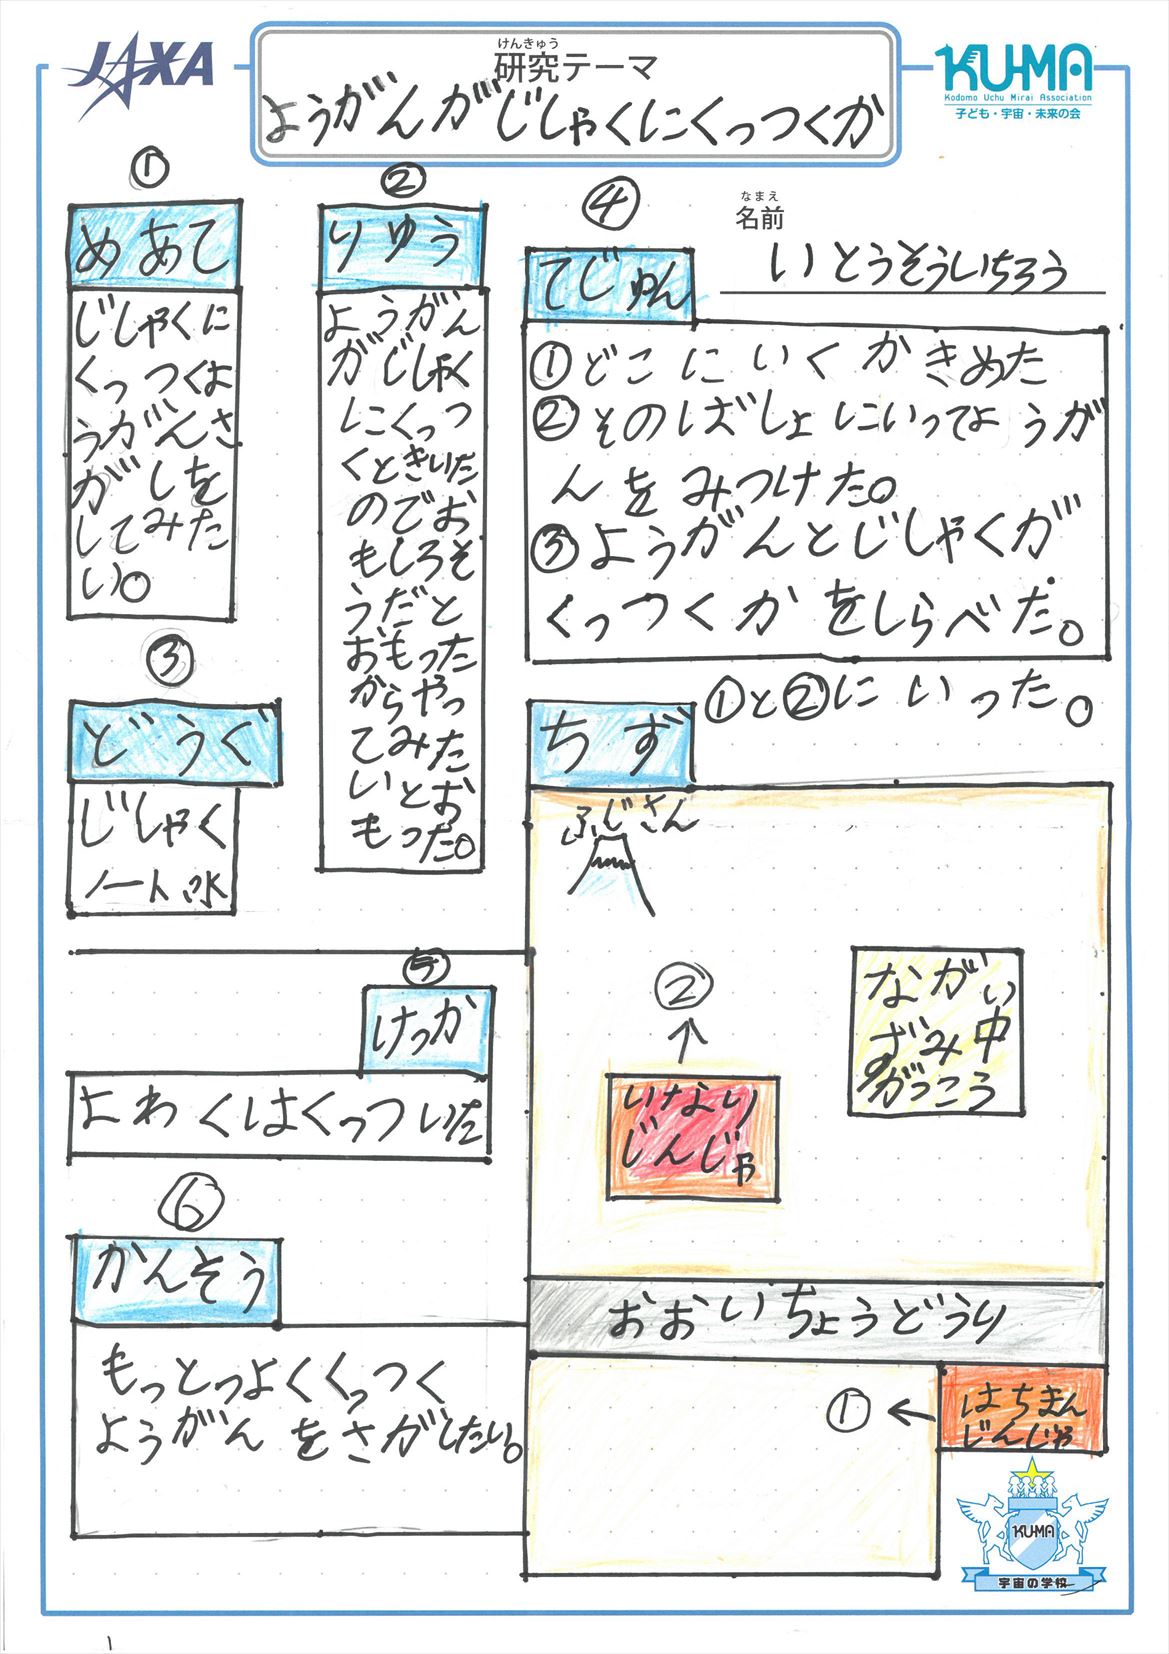 JAXA
けんきゅう
研究テーマ
ようがんがじしゃくにくっつくか
KU-MA
Kodomo Uchu Mirai Association
子ども・宇宙・未来の会
なまえ
名前
いとうそういちろう
①
めあて
じしゃくに
くっつくよ
うがんさ
がしを
してみた
い。
②
りゆう
ようがん
がじしゃく
にくっつ
くときいた
のでお
もしろそ
うだと
おもった
からやっ
てみた
いとお
もった。
③
どうぐ
じしゃく
ノート 水
④
てじゅん
①どこにいくかきめた
②そのばしょにいってようが
んをみつけた。
③ようがんとじしゃくが
くっつくかをしらべた。
ちず
①と②にいった。
ふじさん
②
いなり
じんじゃ
ながい
ずみ中
がっこう
おおいちょうどうり
①
はちまん
じんじゃ
⑤
けっか
よわくはくっついた
⑥
かんそう
もっとつよくくっつく
ようがんをさがしたい。
KU-MA
宇宙の学校